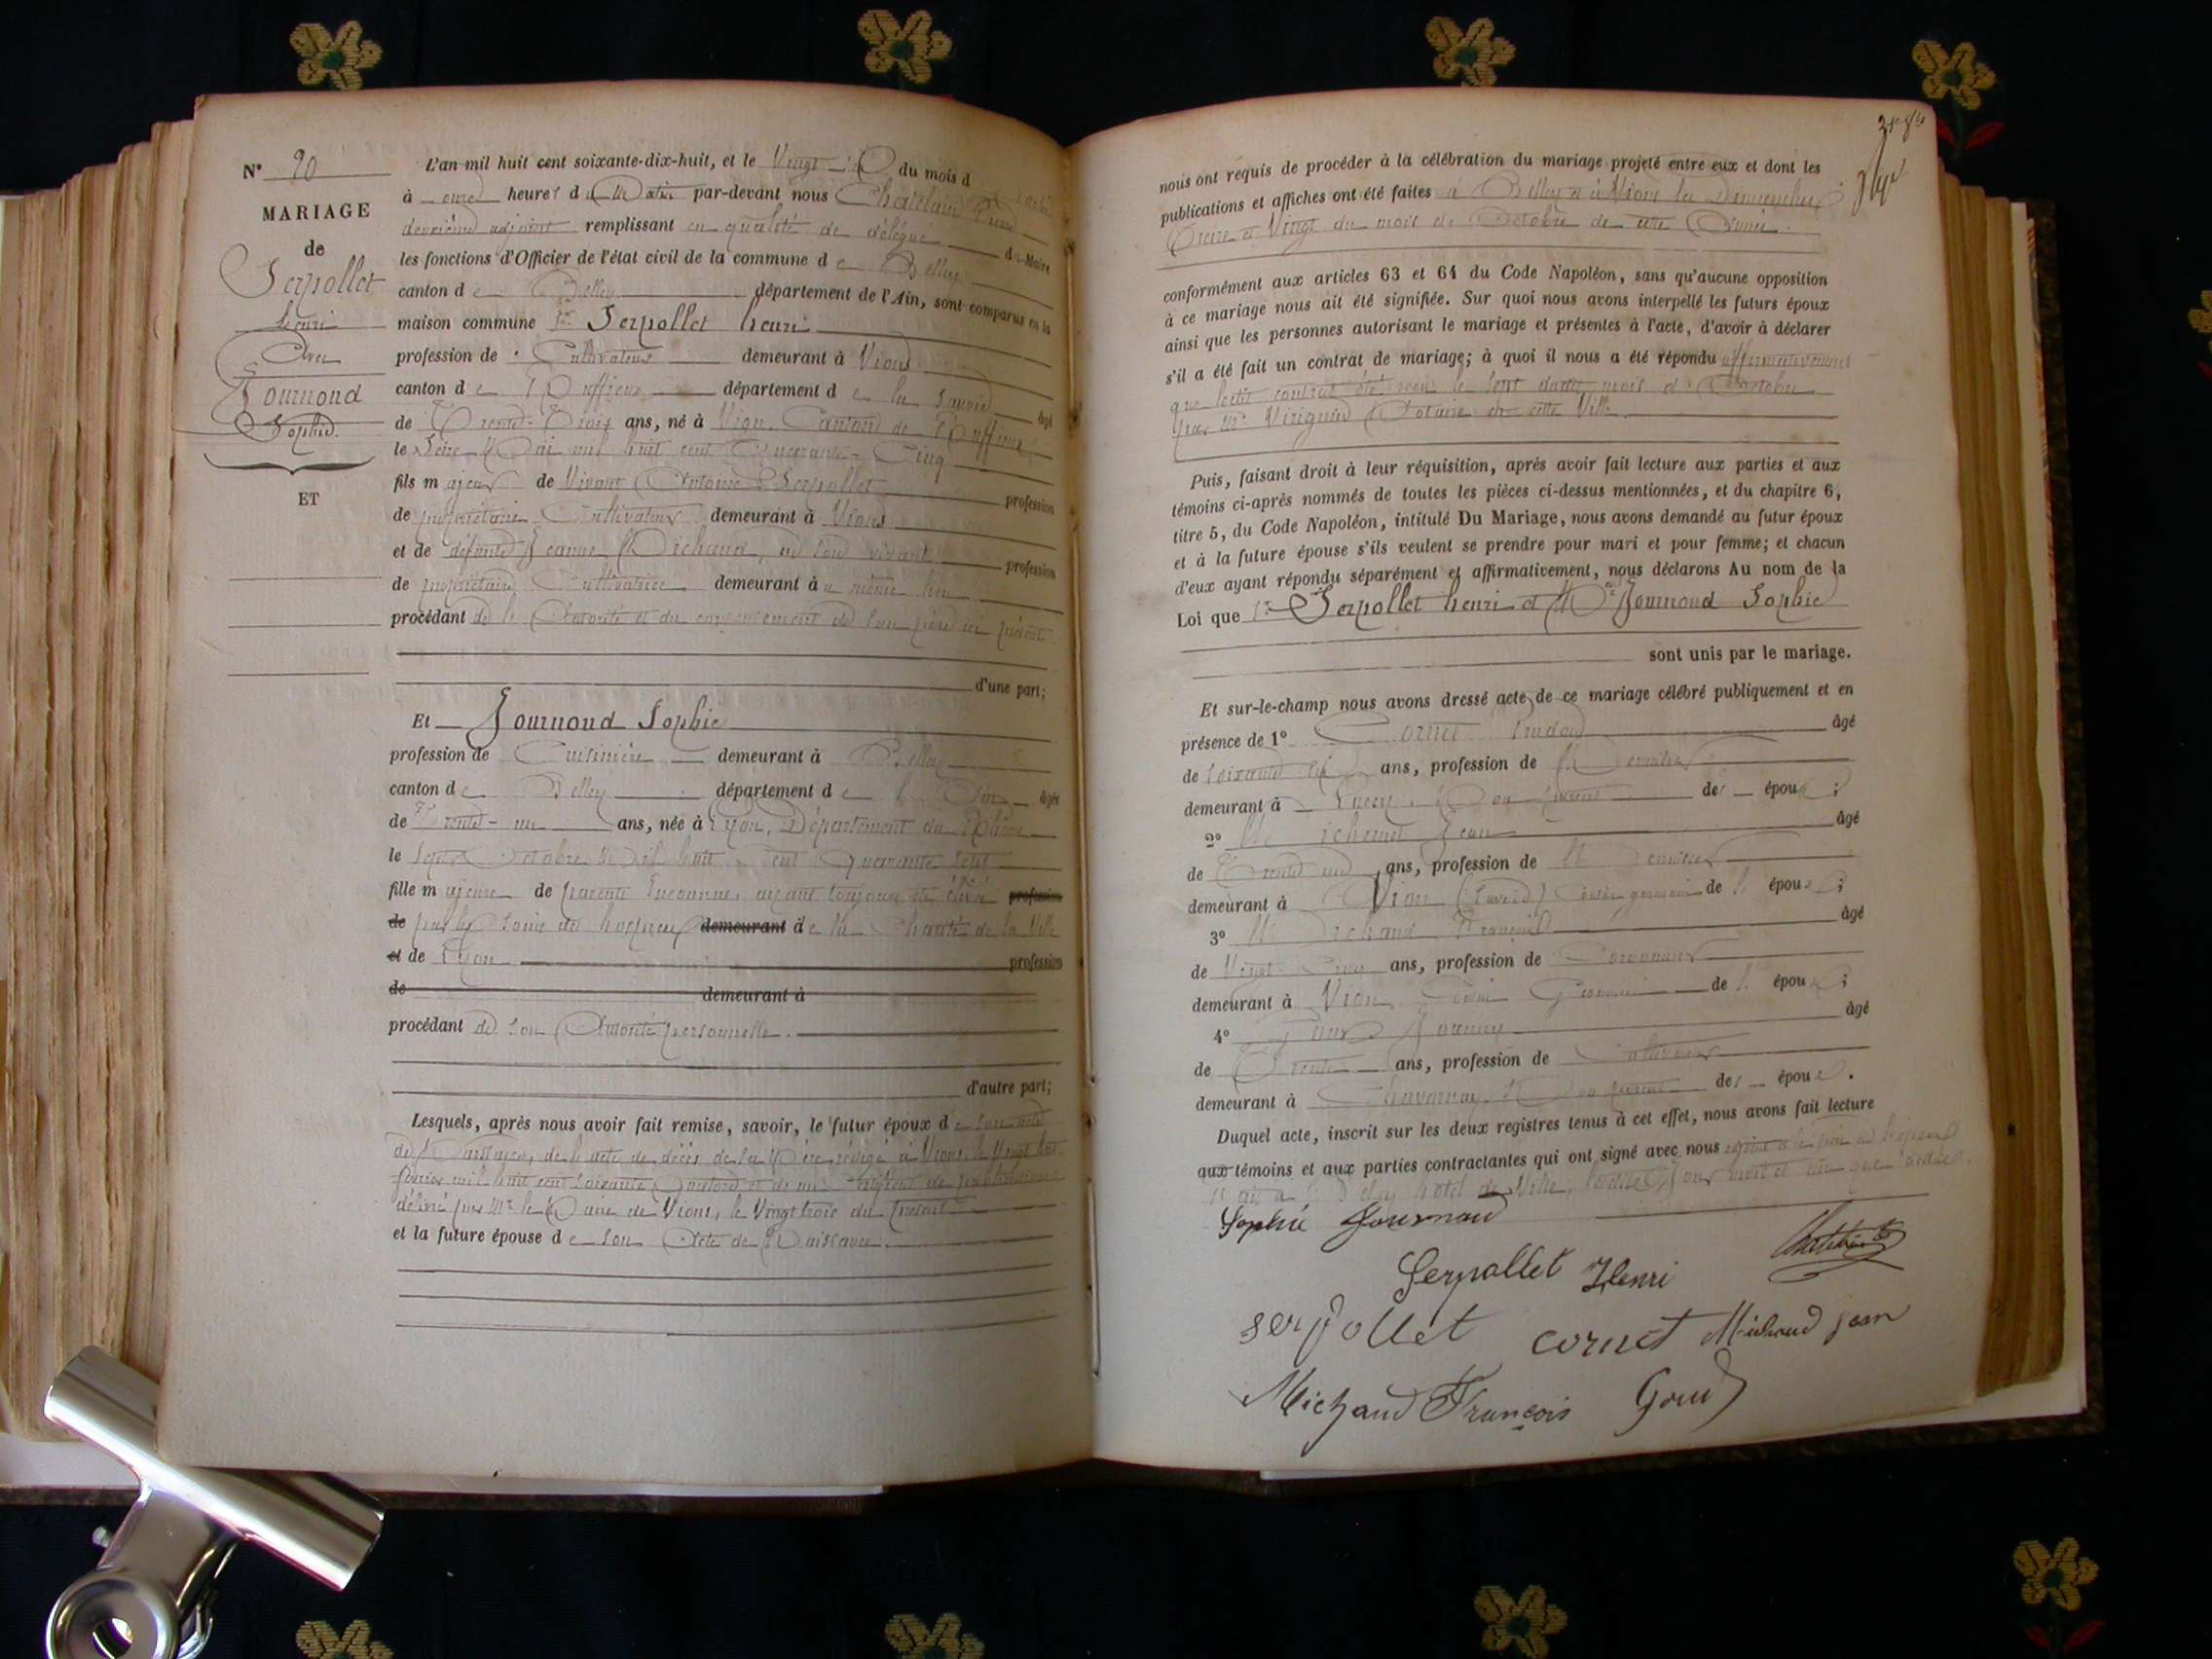 N° 90
MARIAGE
de
Serpollet
henri
Avec
Journoud
Sophie.
ET
L'an mil huit cent soixante-dix-huit, et le Vingt du mois d
à onze heures d u Matin par-devant nous Chatelain
deuxième adjoint remplissant en qualité de délégué du Maire
les fonctions d'Officier de l'état civil de la commune d e Belley
canton d e Belley département de l'Ain, sont comparus en la
maison commune Serpollet henri
profession de Cultivateur demeurant à Vions
canton d e Ruffieux département d e la Savoie âgé
de Trente-Trois ans, né à Vion, Canton de Ruffieux
le Seize Mai mil huit cent Quarante-Cinq
fils m ajeur de Vivant Antoine Serpollet profession
de propriétaire Cultivateur demeurant à Vions
et de défunte Jeanne Michaud, en son vivant profession
de propriétaire Cultivatrice demeurant à u même lieu
procédant de l' Autorité et du consentement de son père ici présent
d'une part;
Et Journoud Sophie
profession de Cuisinière demeurant à Belley
canton d e Belley département d e l' Ain âgée
de Trente-un ans, née à Lyon, Département du Rhône
le Sept Octobre Mil huit cent Quarante Sept
fille m ajeure de parents Inconnus, ayant toujours été élevée profession
de par les Soins des hospices demeurant de la Charité de la Ville
et de Lyon profession
de demeurant à
procédant de son Autorité personnelle.
d'autre part;
Lesquels, après nous avoir fait remise, savoir, le futur époux d e son acte
de Naissance, de l'acte de décès de sa Mère rédigé à Vions, le Vingt
février mil huit cent soixante Quatorze et de un certificat de publications
délivré par Mr le Maire de Vions, le Vingt trois du présent
et la future épouse d e son Acte de Naissance.
nous ont requis de procéder à la célébration du mariage projeté entre eux et dont les
publications et affiches ont été faites à Belley et à Vions les Dimanches
Treize et Vingt du mois de Octobre de cette Année.
conformément aux articles 63 et 64 du Code Napoléon, sans qu'aucune opposition
à ce mariage nous ait été signifiée. Sur quoi nous avons interpellé les futurs époux
ainsi que les personnes autorisant le mariage et présentes à l'acte, d'avoir à déclarer
s'il a été fait un contrat de mariage; à quoi il nous a été répondu affirmativement
que ledit contrat été reçu le Sept dudit mois d' Octobre
par Me Viriguin Notaire de cette Ville
Puis, faisant droit à leur réquisition, après avoir fait lecture aux parties et aux
témoins ci-après nommés de toutes les pièces ci-dessus mentionnées, et du chapitre 6,
titre 5, du Code Napoléon, intitulé Du Mariage, nous avons demandé au futur époux
et à la future épouse s'ils veulent se prendre pour mari et pour femme; et chacun
d'eux ayant répondu séparément et affirmativement, nous déclarons Au nom de la
Loi que Serpollet henri et Journoud Sophie
sont unis par le mariage.
Et sur-le-champ nous avons dressé acte de ce mariage célébré publiquement et en
présence de 1° Cornet âgé
de soixante ans, profession de
demeurant à Non parent des époux ;
2° Michaud Jean âgé
de Trente un ans, profession de
demeurant à Vion (Savoie) Cousin germain de l' époux ;
3° Michaud François âgé
de Vingt-Cinq ans, profession de Cordonnier
demeurant à Vion Cousin Germain de l' époux ;
4° âgé
de Trente ans, profession de Cultivateur
demeurant à Chavornay, Non parent des époux .
Duquel acte, inscrit sur les deux registres tenus à cet effet, nous avons fait lecture
aux témoins et aux parties contractantes qui ont signé avec nous
hôtel de Ville, jour mois et an que dessus.
Sophie Journoud
Chatelain
Serpollet Henri
serpollet cornet Michaud jean
Michaud François